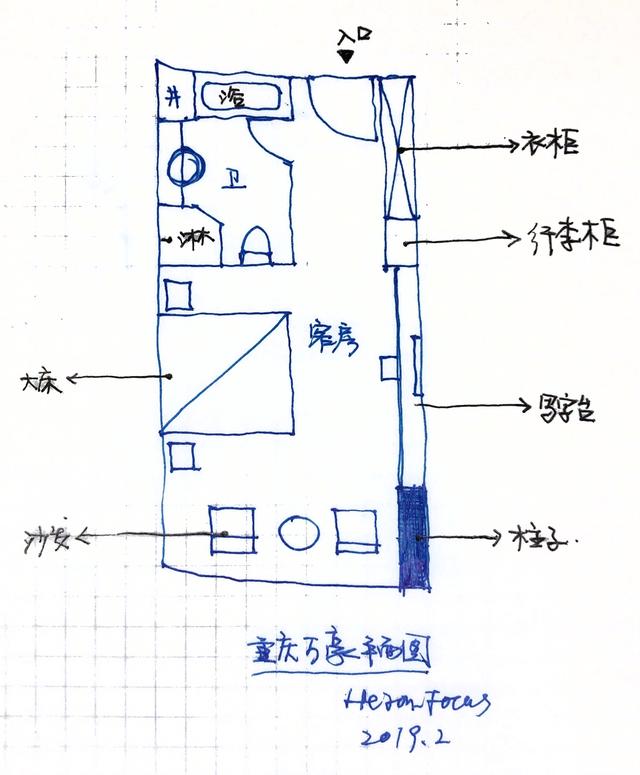 入口
井
浴
衣柜
卫
淋
行李柜
客房
大床
写字台
沙发
柱子.
重庆万豪平面图
HezonFocus
2019.2